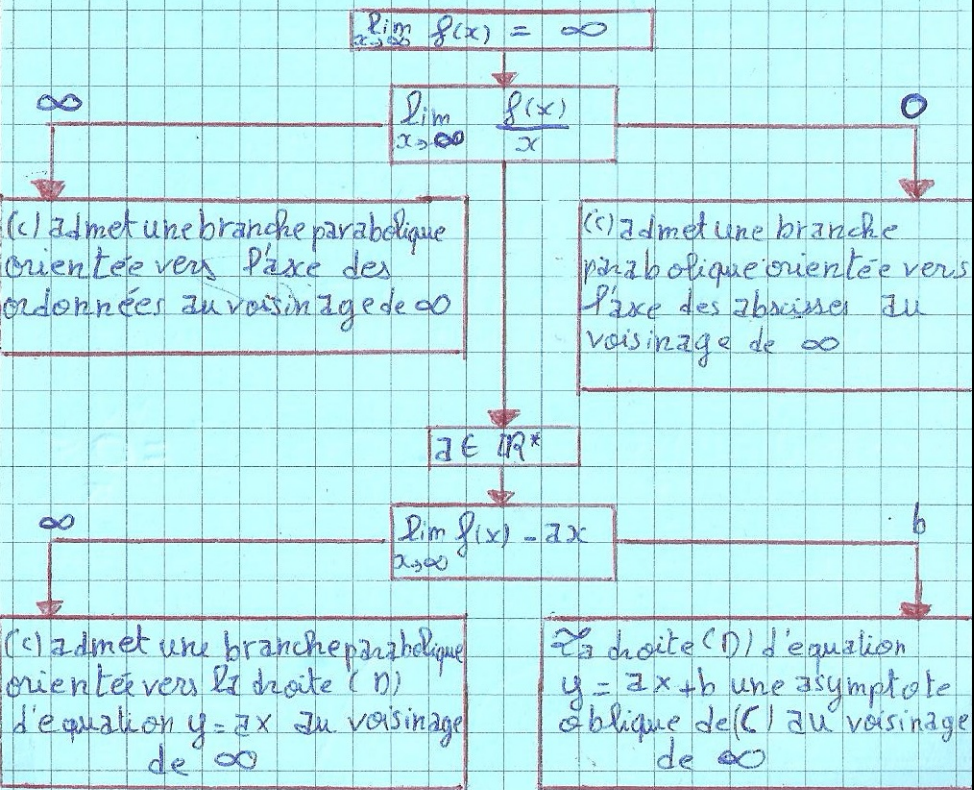 lim f(x) = ∞
x→∞
∞
lim f(x)/x
x→∞
0
(C) admet une branche parabolique
orientée vers l'axe des
ordonnées au voisinage de ∞
(C) admet une branche
parabolique orientée vers
l'axe des abscisses au
voisinage de ∞
a ∈ ℝ*
∞
lim f(x) - ax
x→∞
b
(C) admet une branche parabolique
orientée vers la droite (D)
d'equation y = ax au voisinage
de ∞
La droite (D) d'équation
y = ax+b une asymptote
oblique de (C) au voisinage
de ∞